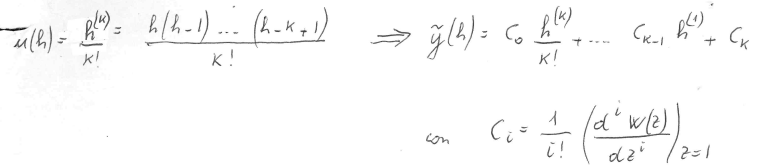 u(h) = h^(k)/k! = h(h-1) .... (h-k+1)/k! ⟹ ỹ(h) = C₀ h^(k)/k! + .... C_{k-1} h^(1) + C_k
con C_i = 1/i! (d^i W(z)/dz^i)_{z=1}